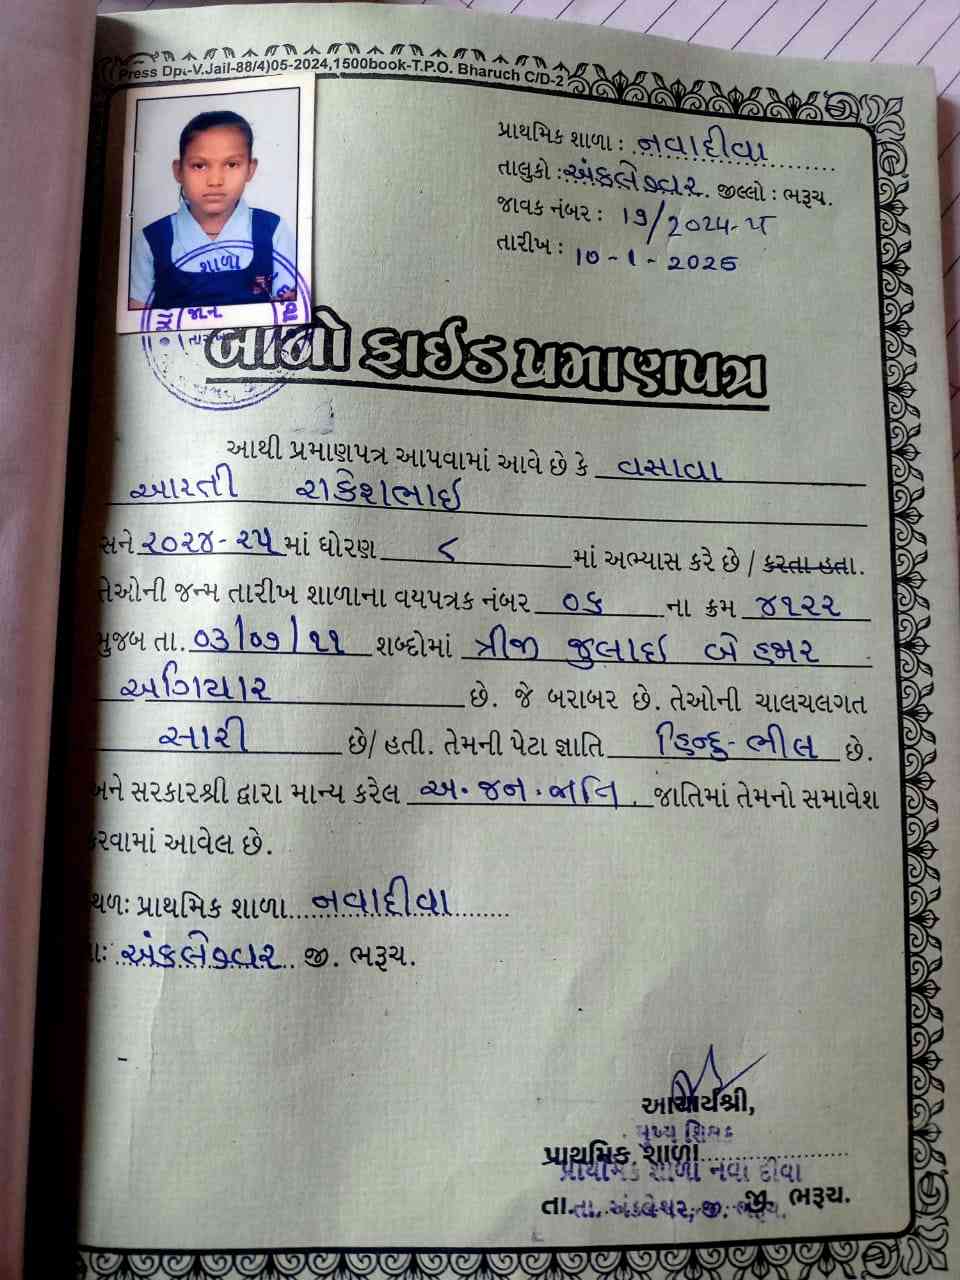 Press Dpt-V.Jail-88/4)05-2024,1500book-T.P.O. Bharuch C/D-2
પ્રાથમિક શાળા : નવાદીવા
તાલુકો : અંકલેશ્વર. જીલ્લો : ભરૂચ.
જાવક નંબર : 19/2024-૫
તારીખ : 10-1-2025
શાળા
બોનાફાઈડ પ્રમાણપત્ર
આથી પ્રમાણપત્ર આપવામાં આવે છે કે વસાવા
આરતી રાકેશભાઈ
સને ૨૦૨૪-૨૫ માં ધોરણ ૮ માં અભ્યાસ કરે છે / કરતા હતા.
તેઓની જન્મ તારીખ શાળાના વયપત્રક નંબર ૦૬ ના ક્રમ ૪૧૨૨
મુજબ તા. ૦૩/૦૭/૧૧ શબ્દોમાં ત્રીજી જુલાઈ બે હજાર
અગિયાર છે. જે બરાબર છે. તેઓની ચાલચલગત
સારી છે/ હતી. તેમની પેટા જ્ઞાતિ હિન્દુ-ભીલ છે.
અને સરકારશ્રી દ્વારા માન્ય કરેલ અ.જન.જાતિ. જાતિમાં તેમનો સમાવેશ
કરવામાં આવેલ છે.
સ્થળઃ પ્રાથમિક શાળા નવાદીવા
તાઃ અંકલેશ્વર જી. ભરૂચ.
આચાર્યશ્રી,
મુખ્ય શિક્ષક
પ્રાથમિક શાળા
પ્રાથમિક શાળા નવા દીવા
તા. જી. ભરૂચ.
તા. અંકલેશ્વર, જી. ભરૂચ.